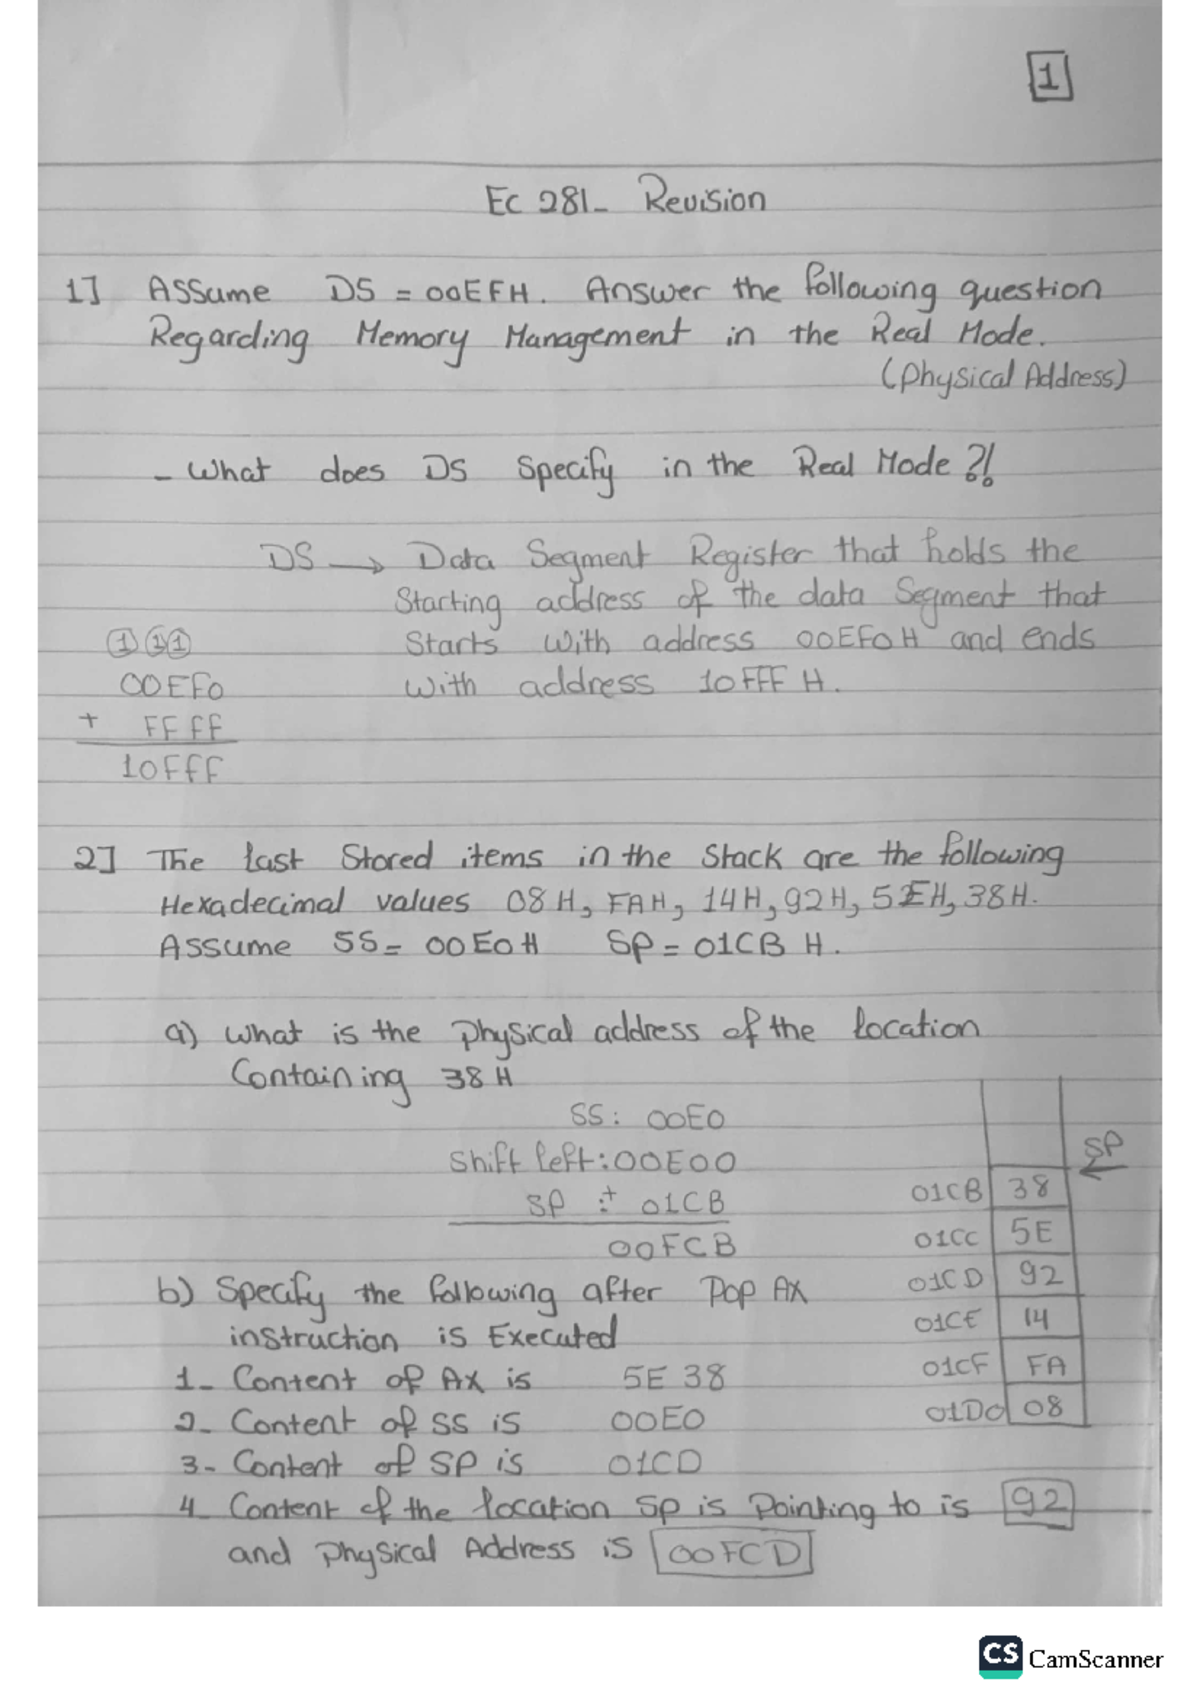 1
EC 281- Revision
1] Assume DS = 00EFH. Answer the following question
Regarding Memory Management in the Real Mode.
(Physical Address)
- What does DS Specify in the Real Mode ?!
DS → Data Segment Register that holds the
Starting address of the data Segment that
Starts with address 00EF0H and ends
with address 10FFF H.
1 1 1
00EF0
+ FFFF
10FFF
2] The last Stored items in the Stack are the following
Hexadecimal values 08H, FAH, 14H, 92H, 5EH, 38H.
Assume SS= 00E0H SP = 01CB H.
a) what is the physical address of the location
Containing 38H
SS: 00E0
Shift left: 00E00
SP :+ 01CB
00FCB
SP
01CB 38
01CC 5E
01CD 92
01CE 14
01CF FA
01D0 08
b) Specify the following after Pop AX
instruction is Executed
1- Content of AX is 5E 38
2- Content of SS is 00E0
3- Content of SP is 01CD
4- Content of the location SP is Pointing to is 92
and Physical Address is 00FCD
CS CamScanner